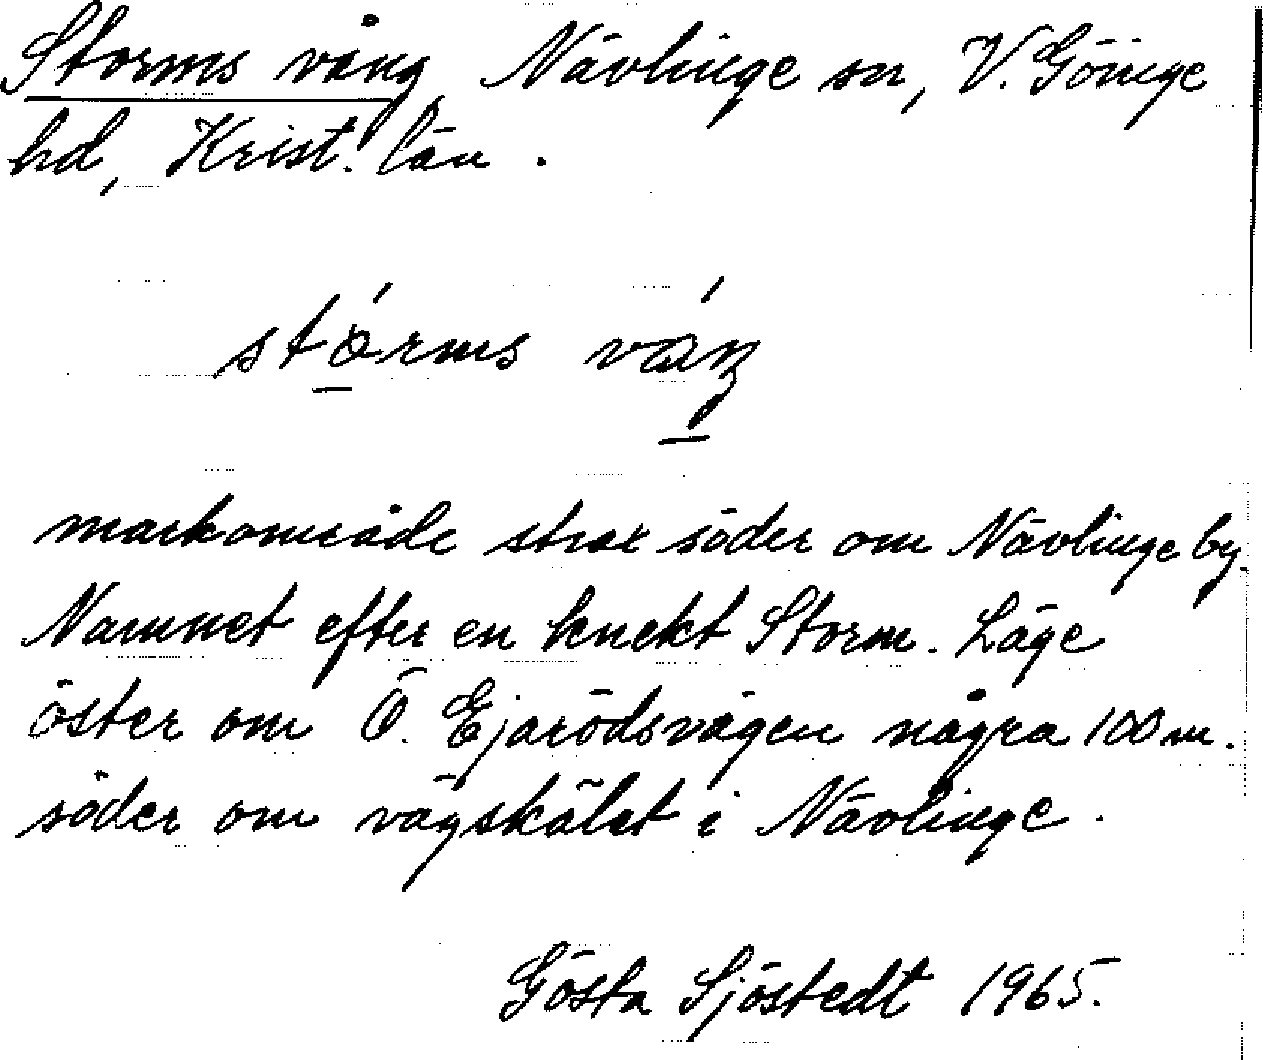 Storms vång Nävlinge sn, V. Göinge
hd, Krist. län.
stórms váŋ
markområde strax söder om Nävlinge by.
Namnet efter en knekt Storm. Läge
öster om Ö. Ejarödsvägen några 100 m.
söder om vägskälet i Nävlinge.
Gösta Sjöstedt 1965.